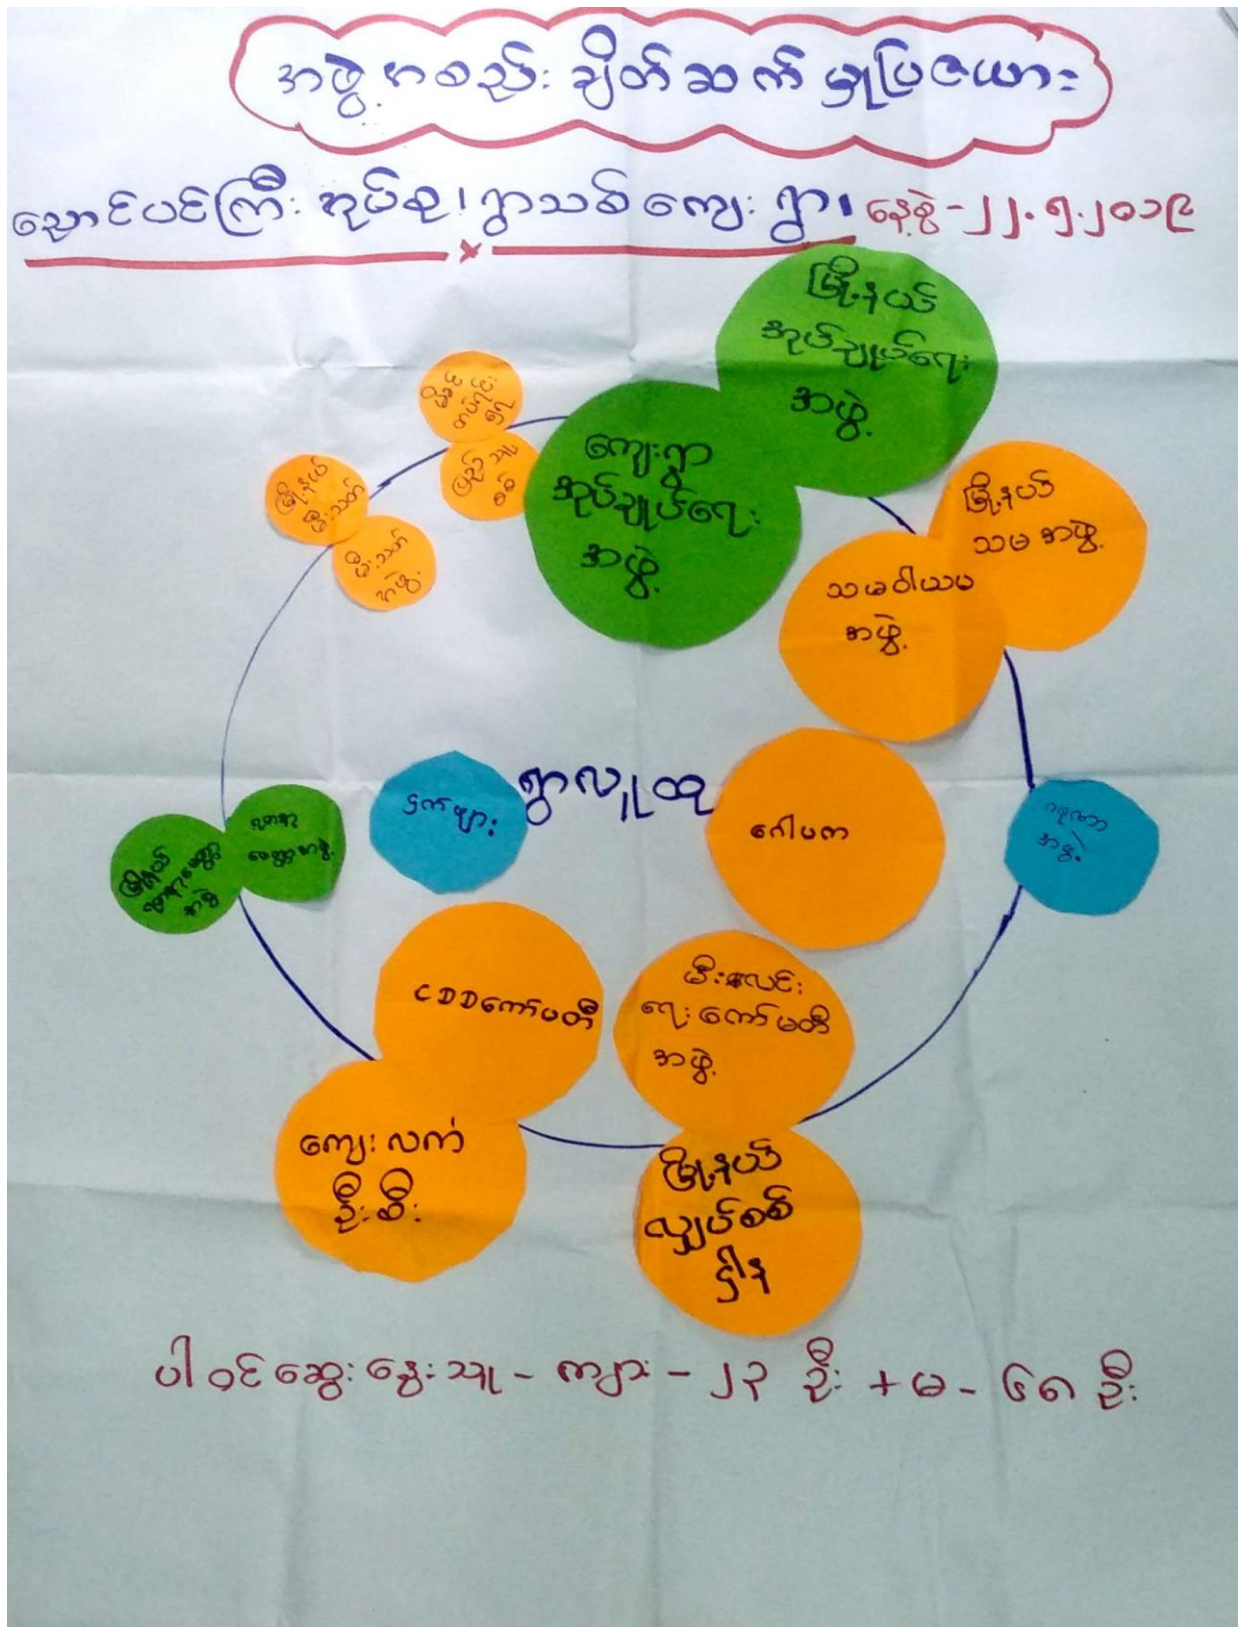 အဖွဲ့အစည်း ချိတ်ဆက်မှုပြဇယား
ညောင်ပင်ကြီး အုပ်စု၊ ရွာသစ် ကျေးရွာ၊ နေ့စွဲ-၂၂.၅.၂၀၁၉
မြို့နယ်
အုပ်ချုပ်ရေး
အဖွဲ့
ကျေးရွာ
အုပ်ချုပ်ရေး
အဖွဲ့
ပြည်သူ
စစ်
မြို့နယ်
မီးသတ်
မီးသတ်
အဖွဲ့
မြို့နယ်
သမ အဖွဲ့
သမဝါယမ
အဖွဲ့
ငှက်ဖျား
ရွာလူထု
ဂေါပက
အဖွဲ့
မြို့နယ်
အဖွဲ့
CDDကော်မတီ
မီးလင်း
ရေးကော်မတီ
အဖွဲ့
ကျေးလက်
ဦးစီး
မြို့နယ်
လျှပ်စစ်
ဌာန
ပါဝင်ဆွေးနွေးသူ - ကျား - ၂၃ ဦး + မ - ၆၈ ဦး